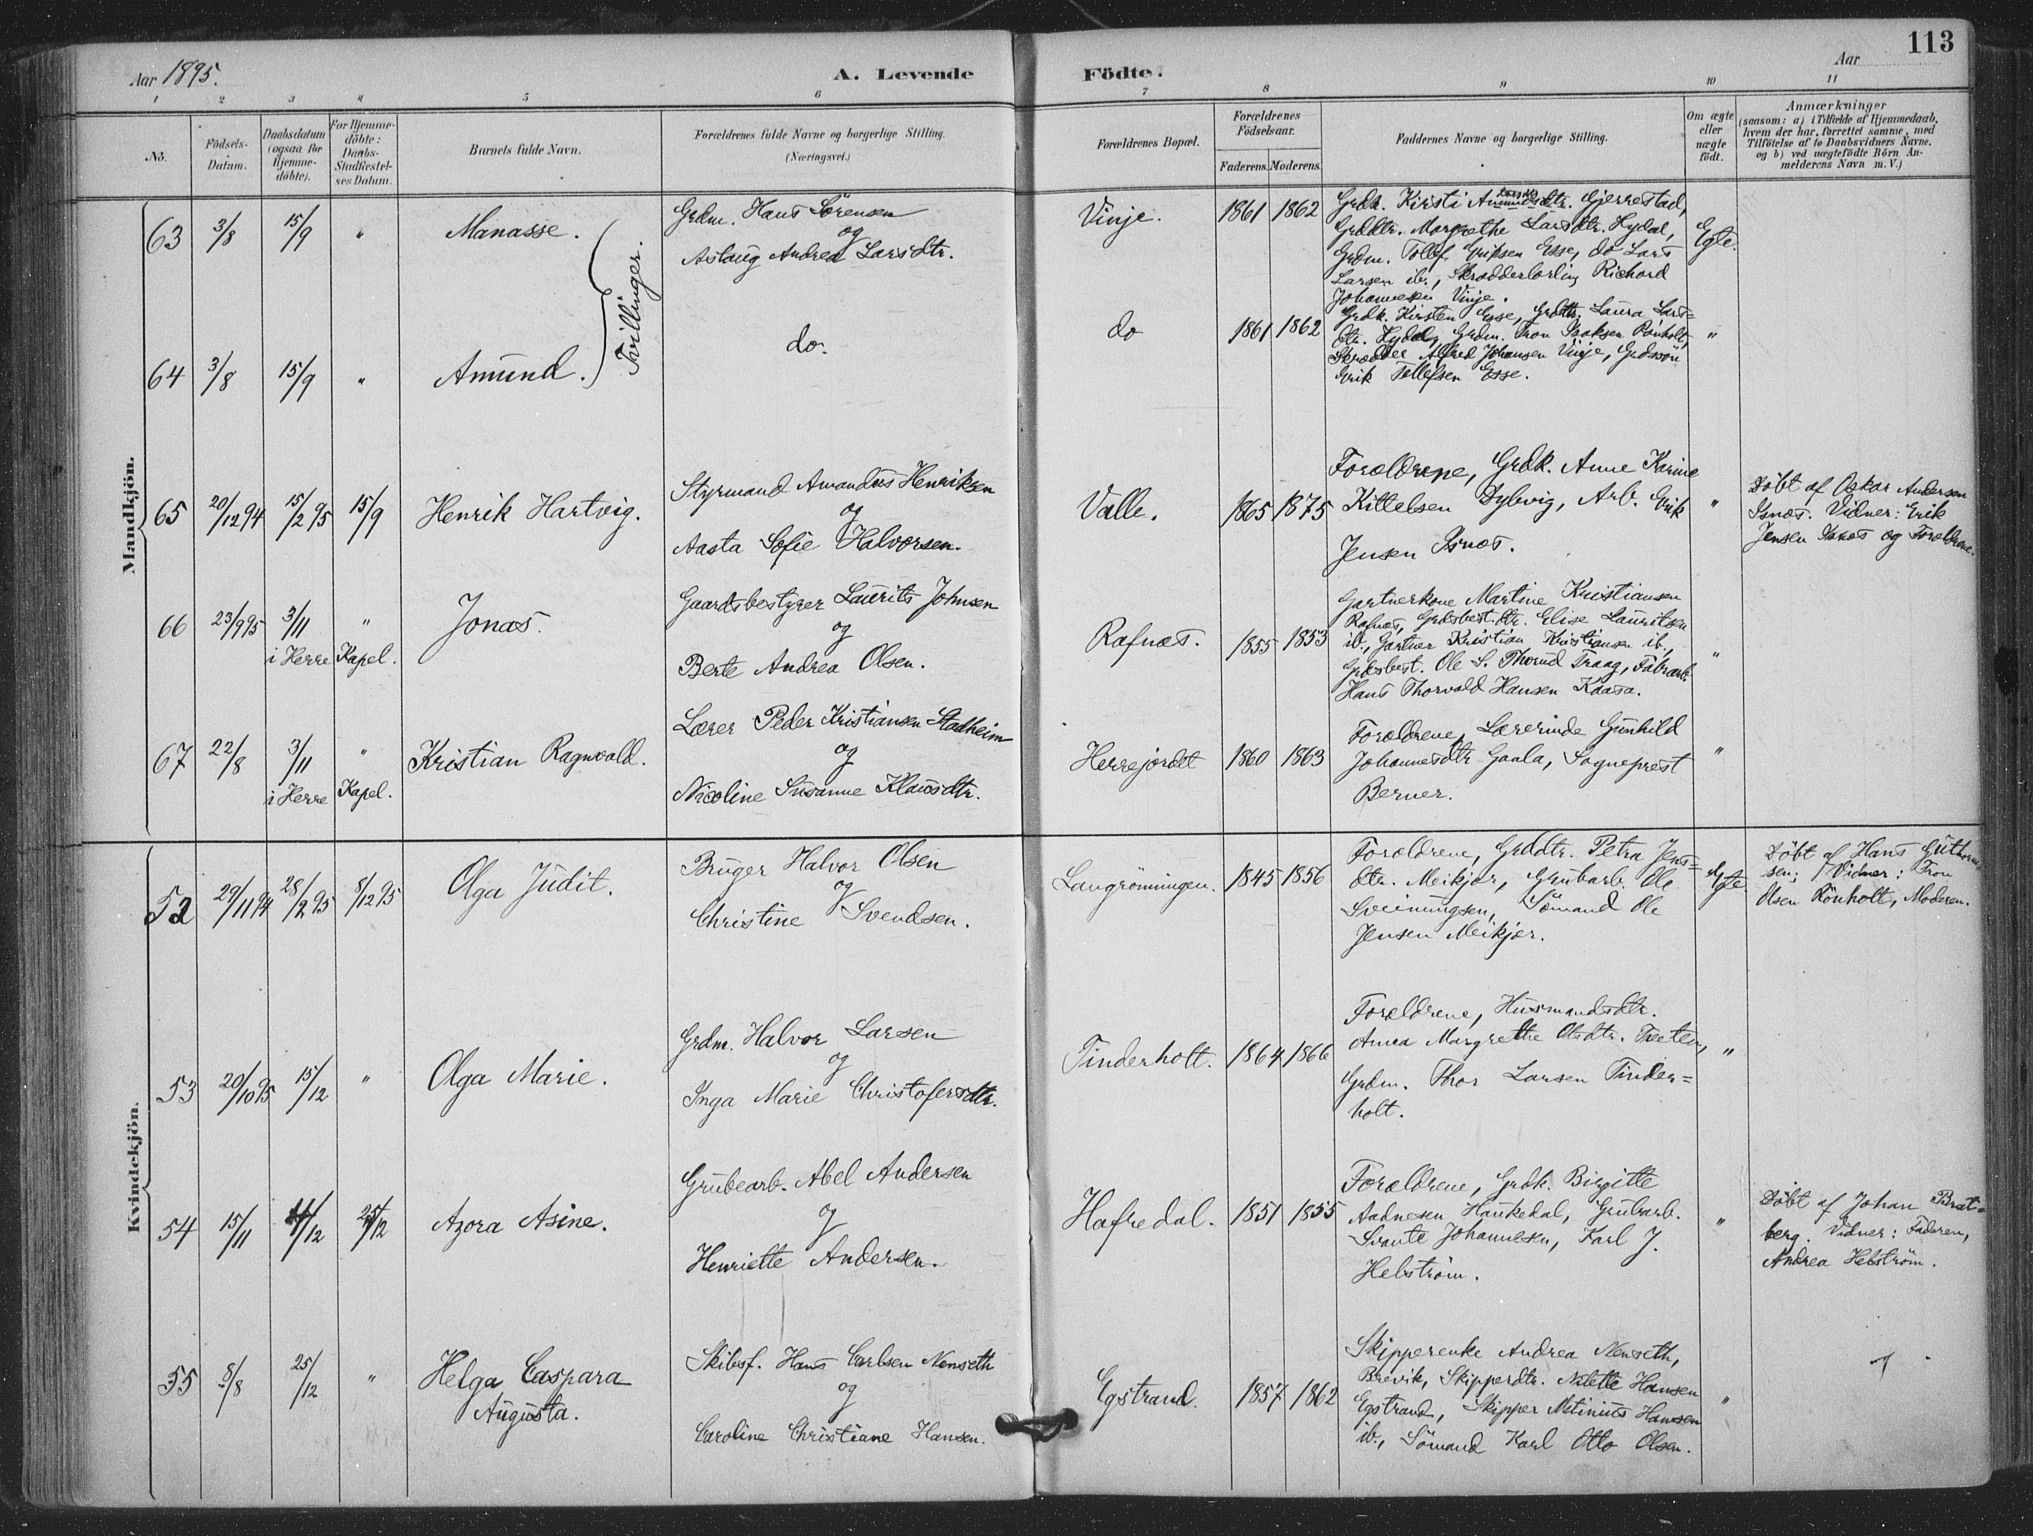 113
Aar 1895.
A. Levende
Födte.
Aar
1 2 3 4 5 6 7 8 9 10 11
No.
Födsels-
Datum.
Daabsdatum
(ogsaa for
Hjemme-
döbte).
For Hjemme-
döbte:
Daabs-
Stadfæstel-
ses Datum.
Barnets fulde Navn.
Forældrenes fulde Navne og borgerlige Stilling.
(Næringsvei.)
Forældrenes Bopæl.
Forældrenes
Födselsaar.
Faderens. Moderens.
Faddernes Navne og borgerlige Stilling.
Om ægte
eller
uægte
födt.
Anmærkninger
(saasom: a) i Tilfælde af Hjemmedaab,
hvem der har forrettet samme, med
Tilföielse af to Daabsvidners Navne,
og b) ved uægtefödte Börn An-
melderens Navn m. V.)
Mandkjön.
63 3/8 15/9 " Manasse.
Tvillinger.
Grdm. Hans Sörensen
og
Aslaug Andrea Larsdtr.
Vinje.
1861 1862
Grdk. Kirsti Gjerrestad,
Grddtr. Margrethe Larsdtr. Lydal,
Grdm. Tollef Eriksen Esse, do Lars
Larsen ib., Skrædderlærling Richard
Johannesen Vinje.
Egte.
64 3/8 15/9 " Amund.
do.
do
1861 1862
Grdk. Kirsten Esse, Grddtr. Laura Lars-
dtr. Lydal, Grdm. Tron Isaksen Rönholt,
Skrædder Alfred Johansen Vinje, Grdssön
Erik Tollefsen Esse.
"
65 20/12 94 15/2 95 15/9 Henrik Hartvig.
Styrmand Amandus Henriksen
og
Aasta Sofie Halvorsen.
Valle.
1865 1875
Forældrene, Grdk. Anne Karine
Kittelsen Dybvig, Arb. Erik
Jensen Isnæs.
"
Döbt af Oskar Andersen
Isnæs. Vidner: Erik
Jensen Isnæs og Forældrene.
66 23/9 95 3/11 " Jonas.
i Herre Kapel.
Gaardsbestyrer Laurits Johnsen
og
Berte Andrea Olsen.
Rafnæs.
1855 1853
Gartnerkone Martine Kristiansen
Rafnæs, Grdsbest. dtr. Elise Lauritsen
ib., Gartner Kristian Kristiansen ib.,
Grdsbest. Ole S. Thorud Traag, Fabrarb.
Hans Thorvald Hansen Kaasa.
"
67 22/8 3/11 " Kristian Ragnvald.
i Herre Kapel.
Lærer Peder Kristiansen Stadheim
og
Nicoline Susanne Klausdtr.
Herrejordet
1860 1863
Forældrene, Lærerinde Gunhild
Johannesdtr Gaala, Sogneprest
Berner.
"
Kvindekjön.
52 29/11 94 28/2 95 8/12 95 Olga Judit.
Bruger Halvor Olsen
og
Christine Svendsen.
Langrönningen.
1845 1856
Forældrene, Grddtr. Petra Jens-
dtr. Meikjær, Grubarb. Ole
Sveinungsen, Sömand Ole
Jensen Meikjær.
Egte
Döbt af Hans Guthorm-
sen; Vidner: Tron
Olsen Rönholt, Moderen.
53 20/10 95 15/12 " Olga Marie.
Grdm. Halvor Larsen
og
Inga Marie Christofersdtr.
Tinderholt.
1864 1866
Forældrene, Husmandsdtr.
Anna Margrethe Olsdtr. Tveten,
Grdm. Thor Larsen Tinder-
holt.
"
54 15/11 /12 25/12 Azora Asine.
Grubearb. Abel Andersen
og
Henriette Andersen.
Hafredal.
1851 1855
Forældrene, Grdk. Birgitte
Aadnesen Haukedal, Grubarb.
Svante Johannesen, Karl J.
Helström.
"
Döbt af Johan Brat-
berg. Vidner: Faderen,
Andrea Helström.
55 8/8 25/12 " Helga Caspara
Augusta.
Skibsf. Hans Carlsen Nenseth
og
Caroline Christiane Hansen.
Egstrand.
1857 1862
Skipperenke Andrea Nenseth,
Brevik, Skipperdtr. Nilette Hansen
Egstrand, Skipper Metinius Hansen
ib., Sömand Karl Otto Olsen.
"